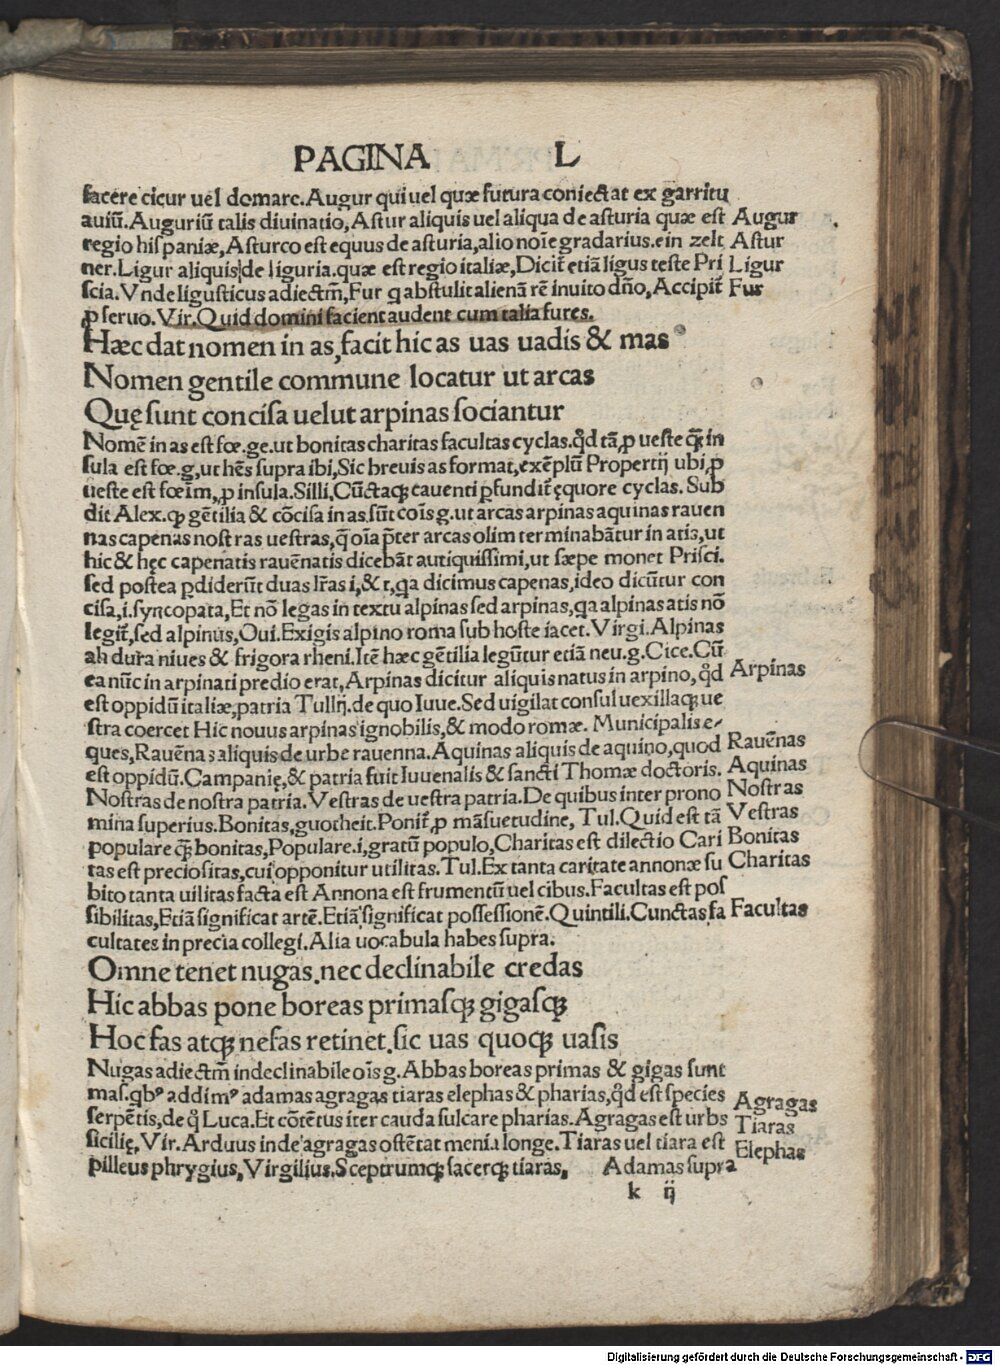 PAGINA L
facere cicur uel domare. Augur qui uel quæ futura coniectat ex garritu
auiū. Auguriū talis diuinatio, Astur aliquis uel aliqua de asturia quæ est Augur
regio hispaniæ, Asturco est equus de asturia, alio noīe gradarius. ein zelt Astur
ner. Ligur aliquis de liguria. quæ est regio italiæ, Dicit̄ etiā ligus teste Pri Ligur
scia. Vnde ligusticus adiectm̄, Fur q abstulit alienā rē inuito dn̄o, Accipit̄ Fur
ꝑ seruo. Vir. Quid domini facient audent cum talia fures.
Hæc dat nomen in as, facit hic as uas uadis & mas
Nomen gentile commune locatur ut arcas
Quę sunt concisa uelut arpinas sociantur
Nomē in as est fœ. ge. ut bonitas charitas facultas cyclas. qd̄ tā, ꝑ ueste qȝ̄ in
sula est fœ. g, ut hēs supra ibi, Sic breuis as format, exēplū Propertij ubi, ꝑ
ueste est fœīm, ꝑ insula. Silli. Cūctaqȝ cauenti ꝑfundit̄ ęquore cyclas. Sub
dit Alex. ꝙ gētilia & cōcisa in as. sūt coīs g. ut arcas arpinas aquinas rauen
nas capenas nostras uestras, q̄ oīa p̄ter arcas olim terminabātur in atis, ut
hic & hęc capenatis rauēnatis dicebāt autiquissimi, ut sæpe monet Prisci.
sed postea ꝑdiderūt duas lr̄as i, & t, qa dicimus capenas, ideo dicūtur con
cisa, i. syncopata, Et nō legas in textu alpinas sed arpinas, qa alpinas atis nō
legit̄, sed alpinus, Oui. Exigis alpino roma sub hoste iacet. Virgi. Alpinas
ah dura niues & frigora rheni. Itē hæc gētilia legūtur etiā neu. g. Cice. Cū
ea nūc in arpinati predio erat, Arpinas dicitur aliquis natus in arpino, qd̄ Arpinas
est oppidū italiæ, patria Tullij. de quo Iuue. Sed uigilat consul uexillaqȝ ue
stra coercet Hic nouus arpinas ignobilis, & modo romæ. Municipalis e⸗
ques, Rauēnas aliquis de urbe rauenna. Aquinas aliquis de aquino, quod Rauēnas
est oppidū. Campanię, & patria fuit Iuuenalis & sancti Thomæ doctoris. Aquinas
Nostras de nostra patria. Vestras de uestra patria. De quibus inter prono Nostras
mina superius. Bonitas, guotheit. Ponit̄, ꝑ māsuetudine, Tul. Quid est tā Vestras
populare qȝ̄ bonitas, Populare. i, gratū populo, Charitas est dilectio Cari Bonitas
tas est preciositas, cui opponitur utilitas. Tul. Ex tanta caritate annonæ su Charitas
bito tanta uilitas facta est Annona est frumentū uel cibus. Facultas est pos
sibilitas, Etiā significat artē. Etiā significat possessionē. Quintili. Cunctas, fa Facultas
cultates in precia collegi. Alia uocabula habes supra.
Omne tenet nugas. nec declinabile credas
Hic abbas pone boreas primasqȝ gigasqȝ
Hoc fas atqȝ nefas retinet, sic uas quoqȝ uasis
Nugas adiectm̄ indeclinabile oīs g. Abbas boreas primas & gigas sunt
mas. qbꝰ addimꝰ adamas agragas tiaras elephas & pharias, qd̄ est species Agragas
serpētis, de q̊ Luca. Et cōtētus iter cauda sulcare pharias. Agragas est urbs Tiaras
sicilię, Vir. Arduus inde agragas ostētat menia longe. Tiaras uel tiara est Elephas
pilleus phrygius, Virgilius. Sceptrumqȝ sacerqȝ tiaras, Adamas supra
k ij
Digitalisierung gefördert durch die Deutsche Forschungsgemeinschaft - DFG